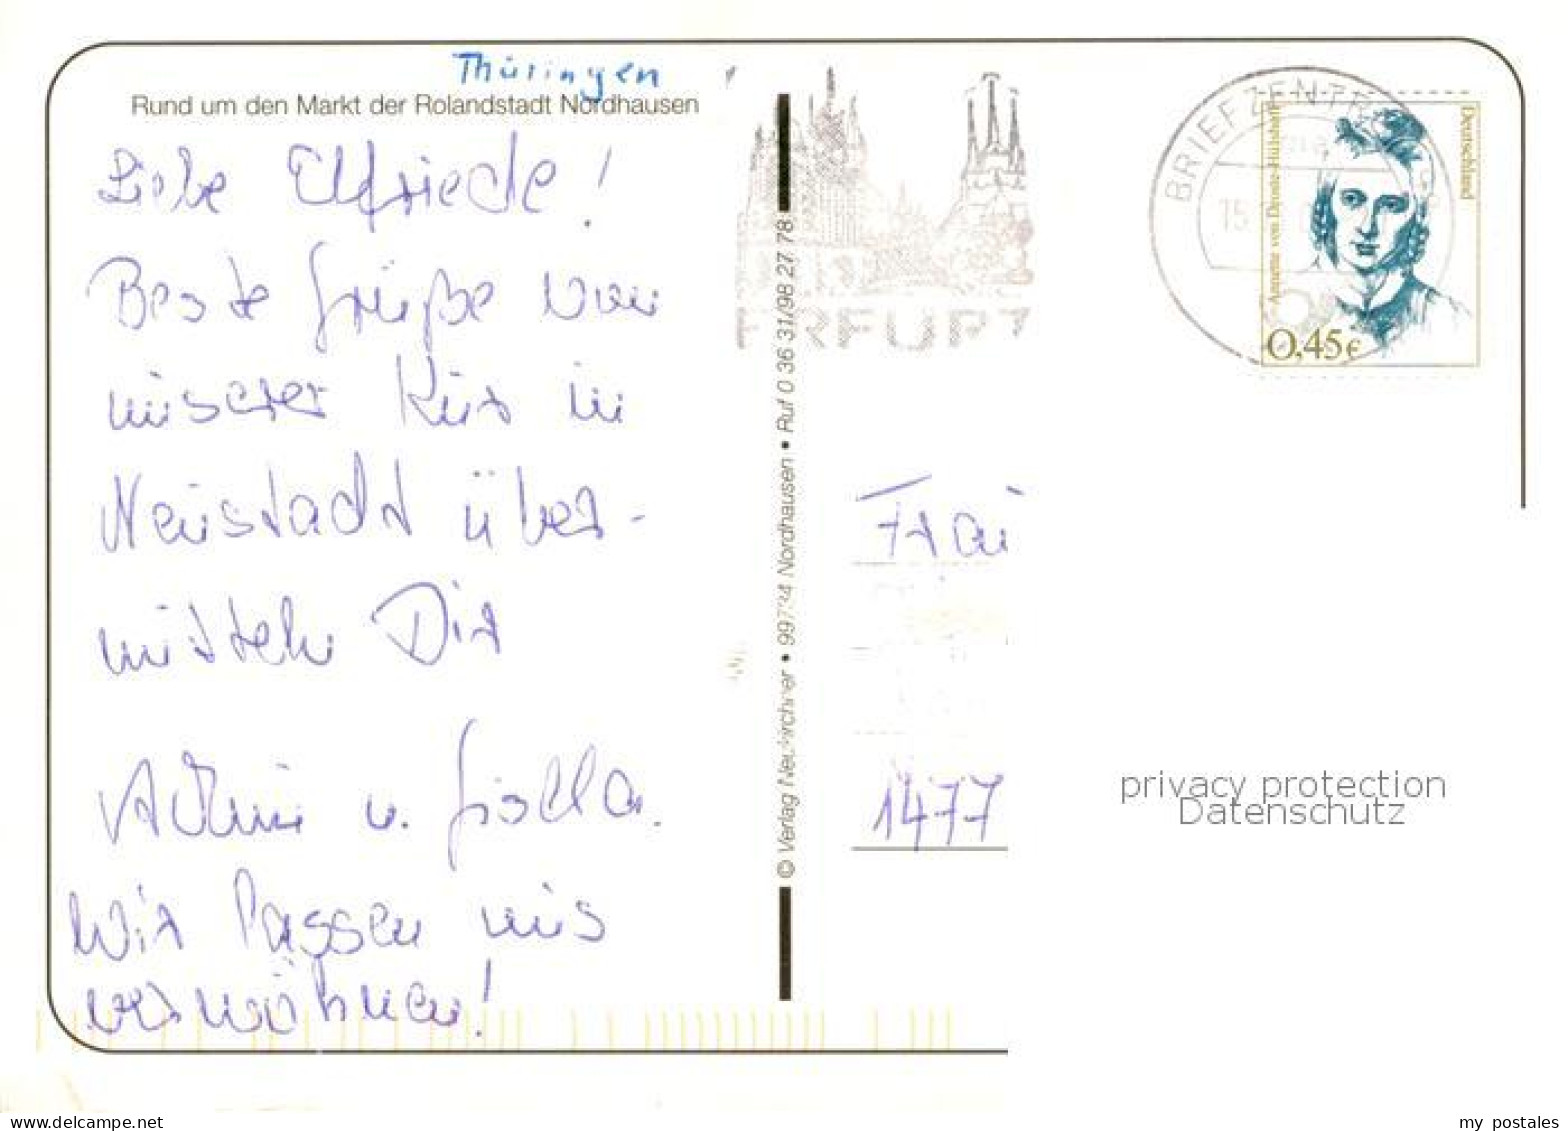 Thüringen
Rund um den Markt der Rolandstadt Nordhausen
Liebe Elfriede!
Beste Grüße von
unserer Kur in
Neustadt über-
mitteln Dir
u.
Wir lassen uns
verwöhnen!
© Verlag Neukirchner • 99734 Nordhausen • Ruf 0 36 31/98 27 78
ERFURT
BRIEFZENTR
15
Annette von Droste-Hülshoff
Deutschland
0,45€
Frau
1477
privacy protection
Datenschutz
www.delcampe.net
my_postales